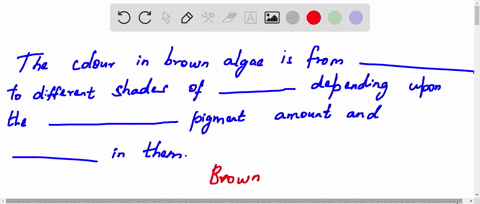 The colour in brown algae is from __________
to different shades of ________ depending upon
the ____________ pigment amount and
________ in them.
Brown